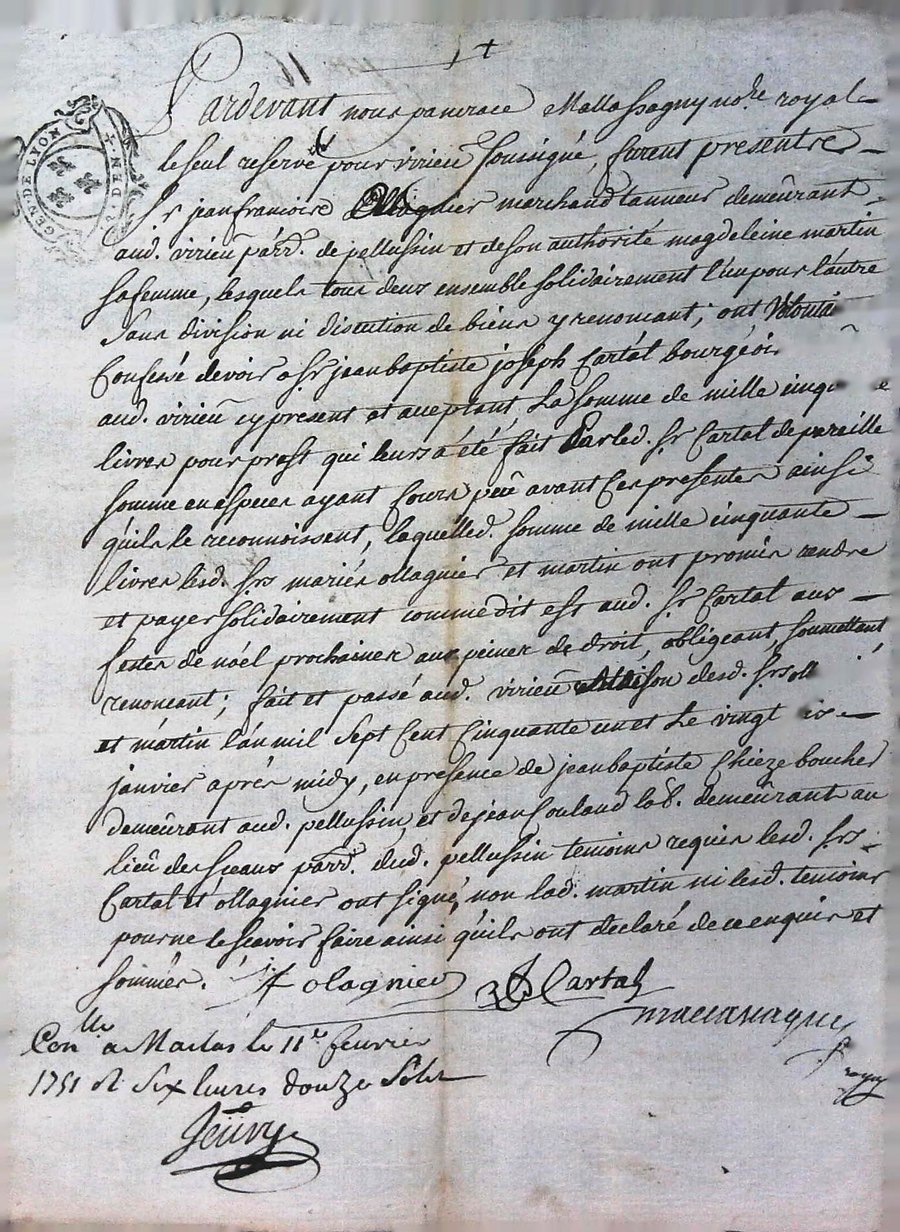 GEN. DE LYON
Pardevant nous pancrace Mallassagny no.re royal
le seul reservé pour virieu soussigné, furent presentre
Sr jeanfrancoise Ollagnier marchand tanneur demeûrant
aud. virieu parr. de pellussin et de son authorité magdeleine martin
sa femme, lesquels tous deux ensemble solidairement l'un pour l'autre
sans division ni discution de biens y renoncant; ont volontai
Confessé devoir a Sr jean baptiste joseph Cartal bourgeois
aud. virieu cy present et acceptant La somme de mille cinq
livres pour prest qui leurs a été fait Par led. Sr Cartal de pareille
somme en especes ayant Cours peu avant Ces presentes ainsi
qu'ils le reconnoissent, laquelled. somme de mille cinquante
livres lesd. Srs mariés ollagnier et martin ont promis rendre
et payer solidairement comme dit est aud. Sr Cartal aux
festes de nôel prochaines aux peines de droit, obligeant, soumettant
renoncant; fait et passé aud. virieu Maison desd. Srs oll
et martin l'an mil sept Cent Cinquante un et Le vingt
janvier aprés midy, en presence de jean baptiste Chieze boucher
demeûrant aud. pellussin, et de jean Couland lab. demeûrant au
lieu des sceaux parr. dud. pellussin temoins requis lesd. Srs
Cartal et ollagnier ont signé, non lad. martin ni lesd. temoins
pour ne le scavoir faire ainsi qu'ils ont declaré de ce enquis et
sommés. olagnier Cartal
mallassagny
Con.lle a Maclas le 11e fevrier
1751 R. Six livres douze Sols
Jeüvy